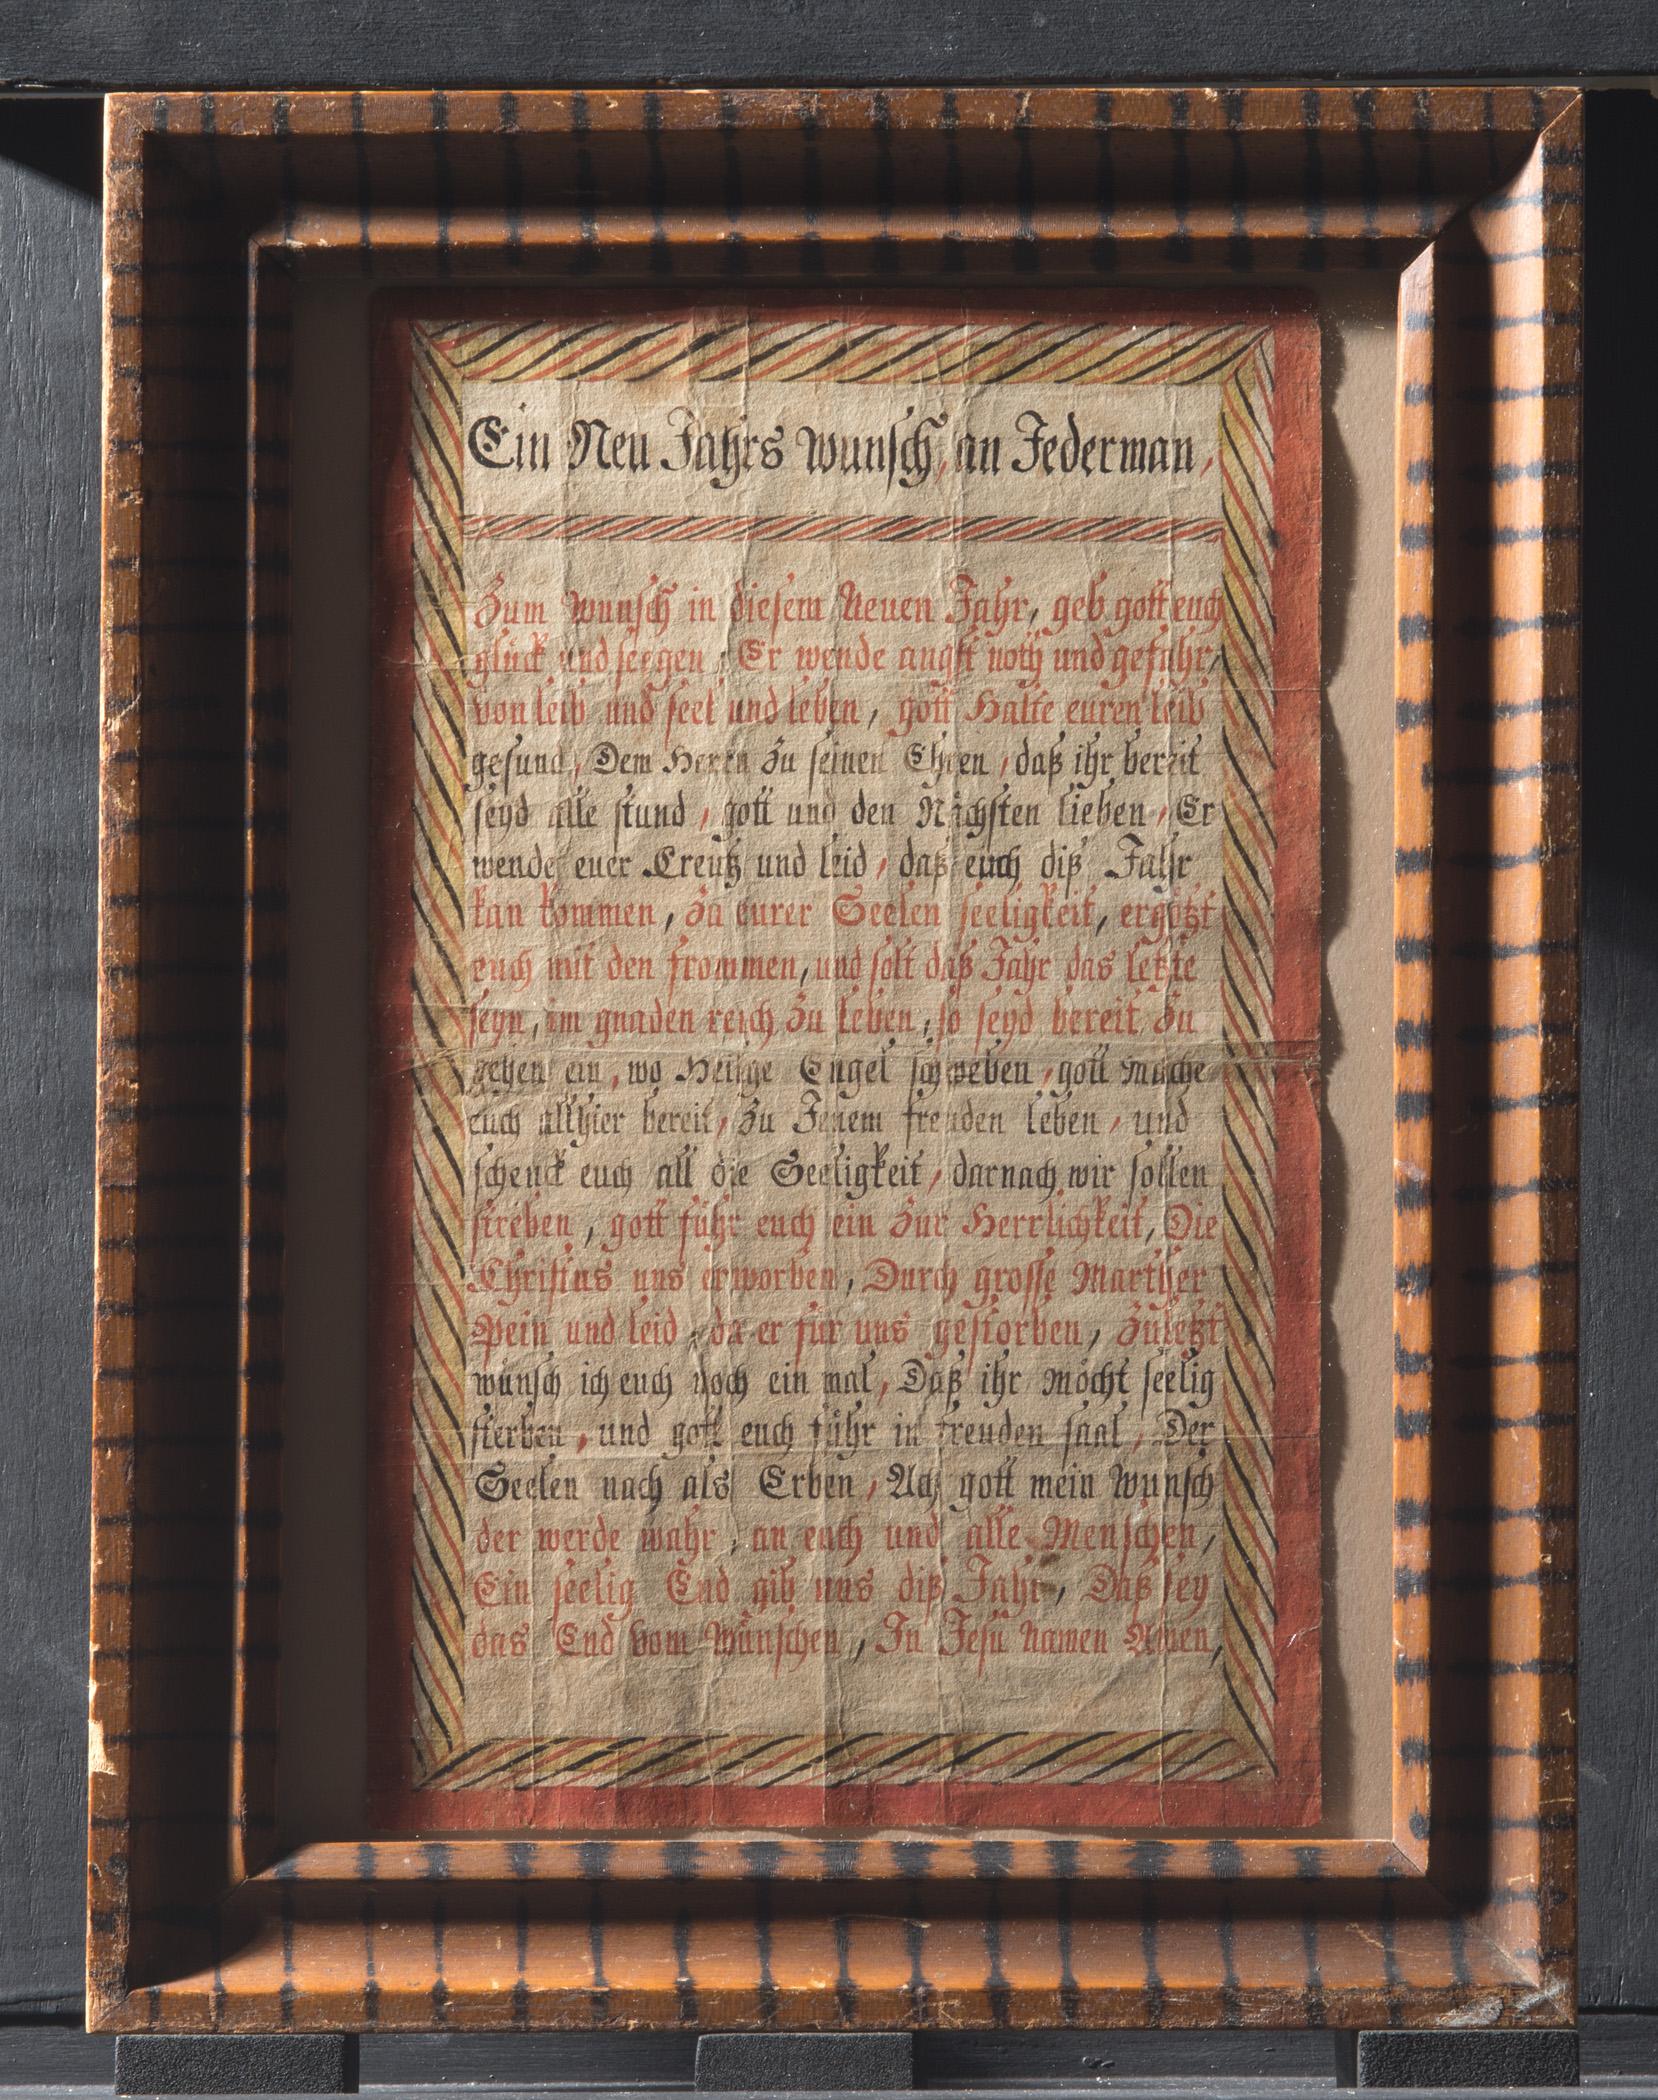 Ein Neu Jahrs wunsch, an Jederman,
Zum Wunsch in diesem Neuen Jahr, geb gott euch
glück und seegen, Er wende angst noth und gefahr,
von leib und seel und leben, gott Halte euren leib
gesund, Dem Herrn zu seinen Ehren, daß ihr bereit
seyd alle stund, gott und den Nächsten lieben, Er
wende euer Creutz und leid, daß euch diß Jahr
kan kommen, zu eurer Seelen seeligkeit, ergötzt
euch mit den frommen, und solt daß Jahr das letzte
seyn, im gnaden reich zu leben, so seyd bereit zu
gehen ein, wo Heilge Engel schweben, gott mache
euch allhier bereit, zu Jenem freuden leben, und
schenck euch all die Seeligkeit, darnach wir sollen
streben, gott führ euch ein zur Herrlichkeit, Die
Christus uns erworben, Durch grosse Marther
Pein und leid, da er für uns gestorben, zuletzt
wünsch ich euch noch ein mal, Daß ihr möcht seelig
sterben, und gott euch führ in freuden saal, Der
Seelen nach als Erben, Ach gott mein Wunsch
der werde wahr, an euch und alle Menschen,
Ein seelig End gib uns diß Jahr, Daß sey
das End vom Wünschen, In Jesu Namen Amen,